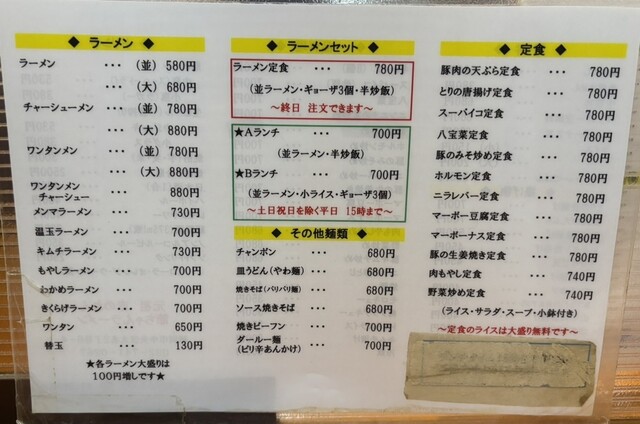 ◆ ラーメン ◆
ラーメン ･･･ (並) 580円
･･･ (大) 680円
チャーシューメン ･･･ (並) 780円
･･･ (大) 880円
ワンタンメン ･･･ (並) 780円
･･･ (大) 880円
ワンタンメン
チャーシュー ･･･ 880円
メンマラーメン ･･･ 730円
温玉ラーメン ･･･ 700円
キムチラーメン ･･･ 730円
もやしラーメン ･･･ 700円
わかめラーメン ･･･ 700円
きくらげラーメン ･･･ 700円
ワンタン ･･･ 650円
替玉 ･･･ 130円
★各ラーメン大盛りは
100円増しです★
◆ ラーメンセット ◆
ラーメン定食 ･･･ 780円
(並ラーメン・ギョーザ3個・半炒飯)
～終日 注文できます～
★Aランチ ･･･ 700円
(並ラーメン・半炒飯)
★Bランチ ･･･ 700円
(並ラーメン・小ライス・ギョーザ3個)
～土日祝日を除く平日 15時まで～
◆ その他麺類 ◆
チャンポン ･･･ 680円
皿うどん(やわ麺) ･･･ 680円
焼きそば(バリバリ麺) ･･･ 680円
ソース焼きそば ･･･ 680円
焼きビーフン ･･･ 700円
ダールー麺
(ピリ辛あんかけ) ･･･ 700円
◆ 定食 ◆
豚肉の天ぷら定食 ･･･ 780円
とりの唐揚げ定食 ･･･ 780円
スーパイコ定食 ･･･ 780円
八宝菜定食 ･･･ 780円
豚のみそ炒め定食 ･･･ 780円
ホルモン定食 ･･･ 780円
ニラレバー定食 ･･･ 780円
マーボー豆腐定食 ･･･ 780円
マーボーナス定食 ･･･ 780円
豚の生姜焼き定食 ･･･ 780円
肉もやし定食 ･･･ 740円
野菜炒め定食 ･･･ 740円
(ライス・サラダ・スープ・小鉢付き)
～定食のライスは大盛り無料です～